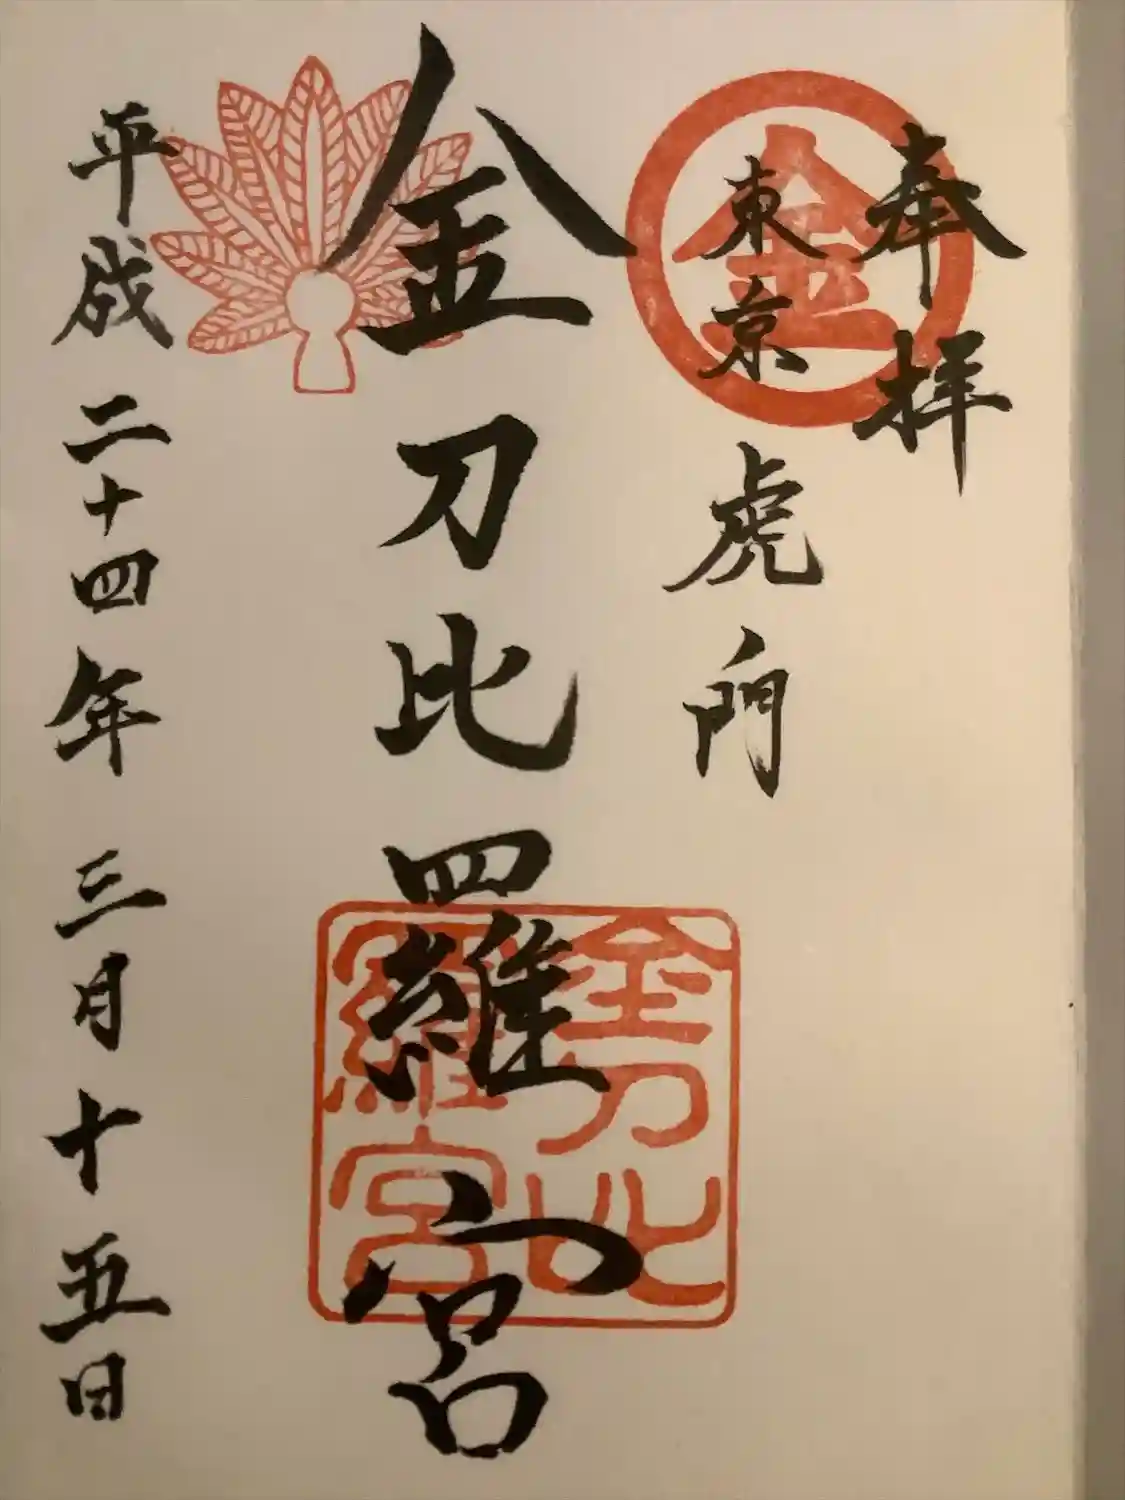 奉拝
金
東京虎門
金刀比羅宮
金刀比
羅宮
平成二十四年三月十五日